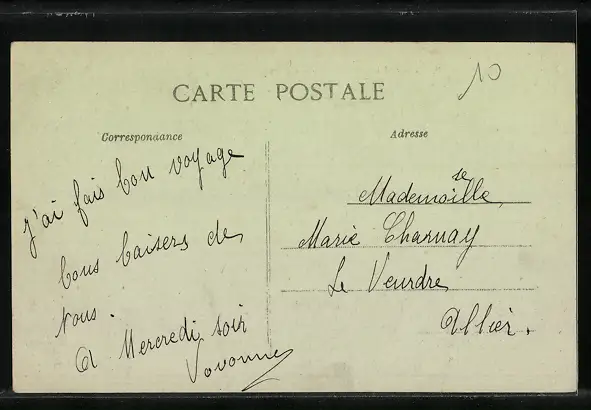 10
CARTE POSTALE
Correspondance
Adresse
J'ai fais bon voyage
bons baisers de
nous.
A Mercredi soir
Vovonne
Mademoiselle
Marie Charnay
Le Veurdre
Allier.